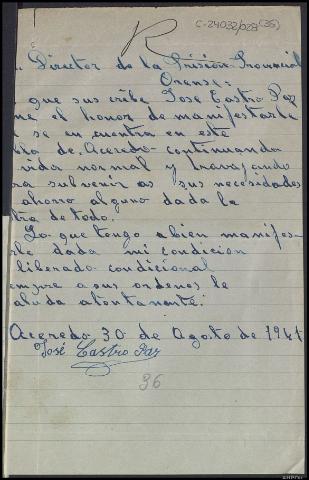 C-24032/028(35)
R
Director de la Prision Provincial
Orense:
que suscribe Jose Castro Paz
ne el honor de manifestarle
se en cuentra en este
de Acevedo continuando
vida normal y travajando
ra subvenir as sus necesidades
ahorro alguno dada la
tra de todo.
Lo que tengo a bien manifes-
rle dada mi condicion
liberado condicional
empre a sus ordenes le
aluda atentamente:
Acevedo 30 de Agosto de 1941
José Castro Paz
36